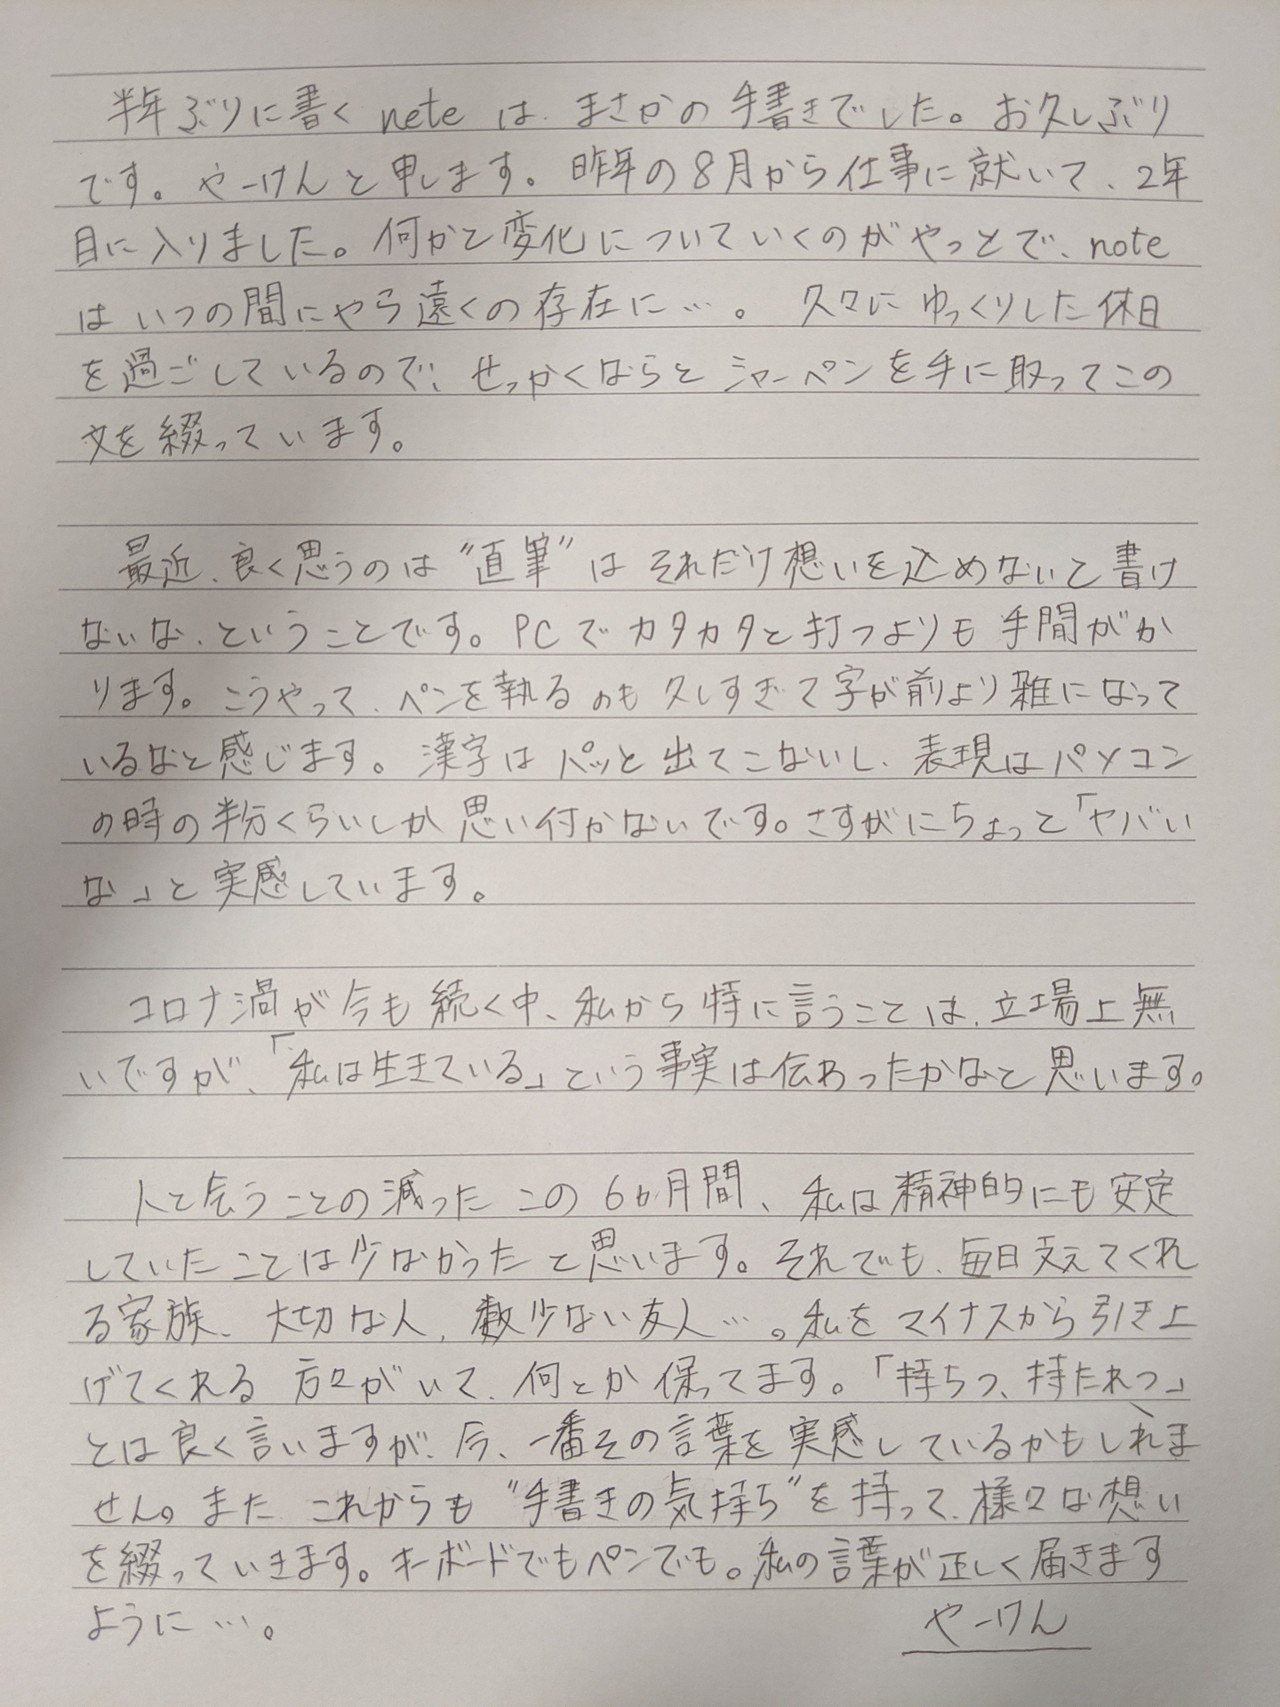 半年ぶりに書く note は、まさかの手書きでした。お久しぶり
です。やーけんと申します。昨年の8月から仕事に就いて、2年
目に入りました。何かと変化についていくのがやっとで、note
はいつの間にやら遠くの存在に…。久々にゆっくりした休日
を過ごしているので、せっかくならとシャーペンを手に取ってこの
文を綴っています。
最近、良く思うのは"直筆"はそれだけ想いを込めないと書け
ないな、ということです。PCでカタカタと打つよりも手間がか
ります。こうやって、ペンを執るのも久しすぎて字が前より雑になって
いるなと感じます。漢字はパッと出てこないし、表現はパソコン
の時の半分くらいしか思い付かないです。さすがにちょっと「ヤバい
な」と実感しています。
コロナ渦が今も続く中、私から特に言うことは、立場上無
いですが、「私は生きている」という事実は伝わったかなと思います。
人と会うことの減ったこの6ヶ月間、私は精神的にも安定
していたことは少なかったと思います。それでも、毎日支えてくれ
る家族、大切な人、数少ない友人…。私をマイナスから引き上
げてくれる方々がいて、何とか保ってます。「持ちつ、持たれつ」
とは良く言いますが、今、一番その言葉を実感しているかもしれま
せん。またこれからも"手書きの気持ち"を持って、様々な想い
を綴っていきます。キーボードでもペンでも。私の言葉が正しく届きます
ように…。
やーけん